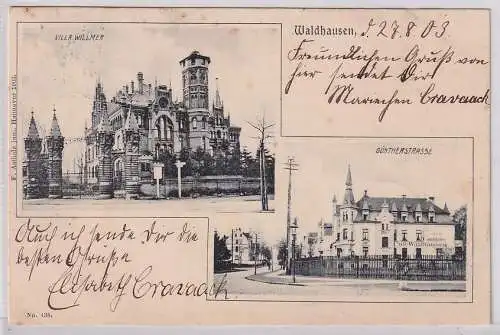 VILLA WILLMER
Waldhausen, d. 27.8.03
Freundlichen Gruß von
hier sendet Dir
Mariechen Cravaack
GÜNTHERSTRASSE
Auch ich sende Dir die
besten Grüsse
Elisabeth Cravaack
No. 438.